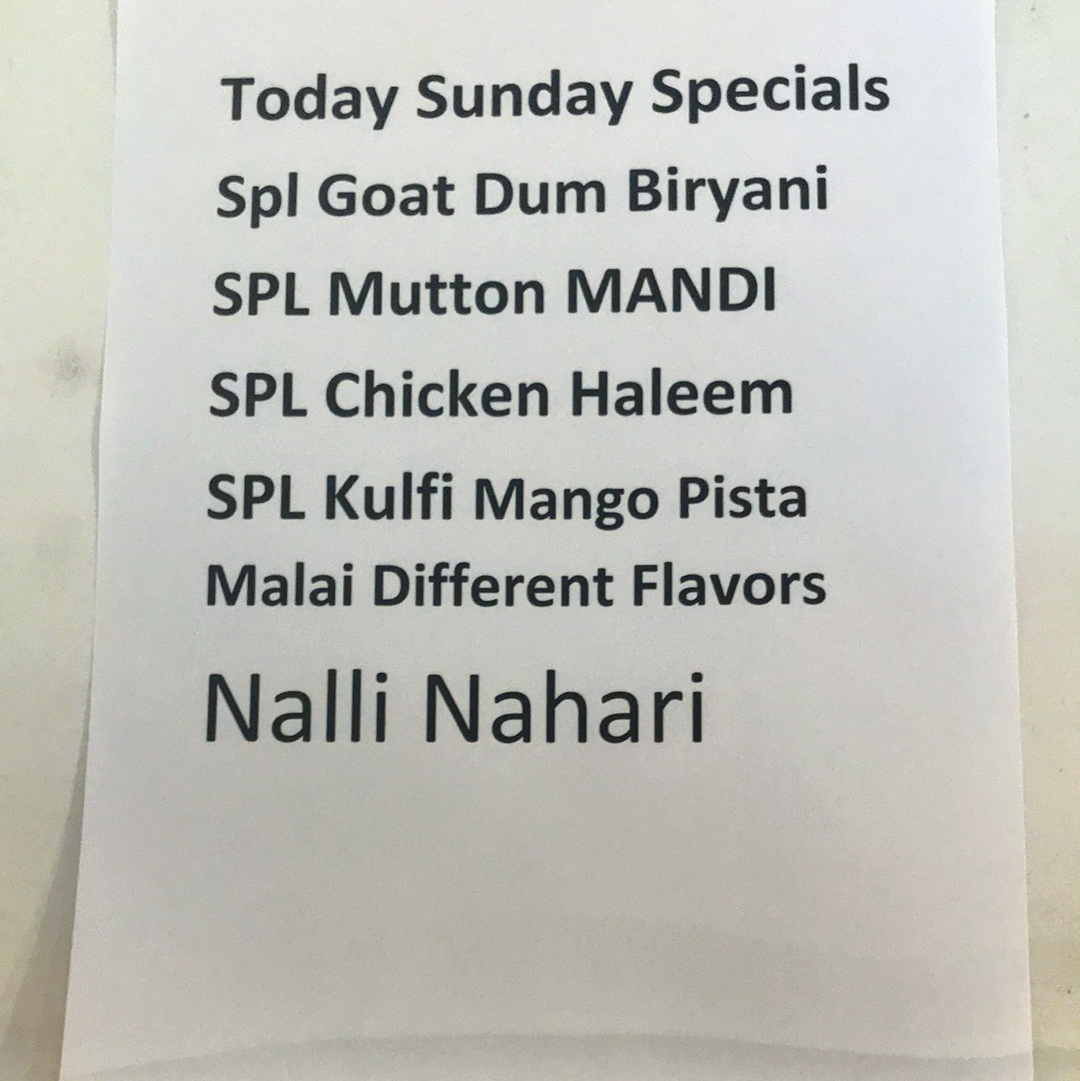 Today Sunday Specials
Spl Goat Dum Biryani
SPL Mutton MANDI
SPL Chicken Haleem
SPL Kulfi Mango Pista
Malai Different Flavors
Nalli Nahari